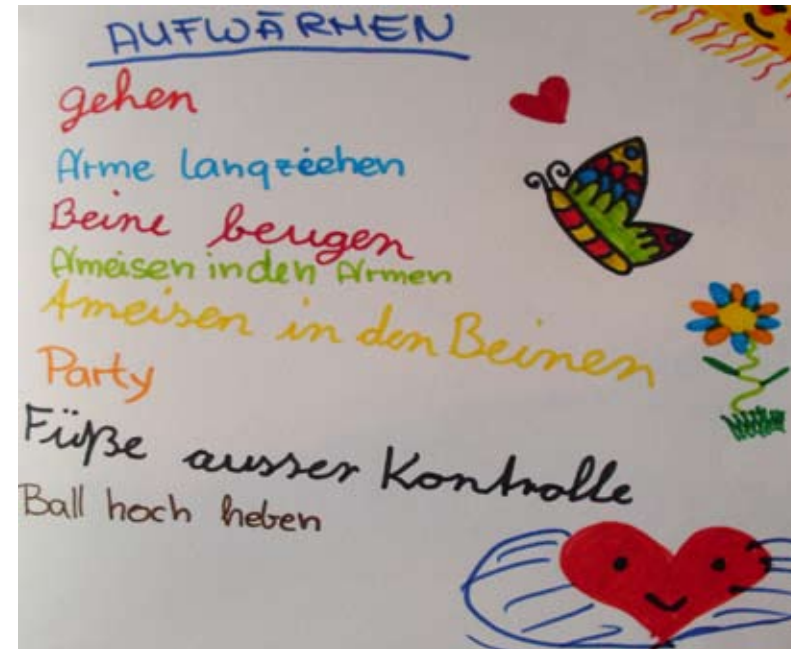 AUFWÄRMEN
gehen
Arme langziehen
Beine beugen
Ameisen in den Armen
Ameisen in den Beinen
Party
Füße ausser Kontrolle
Ball hoch heben